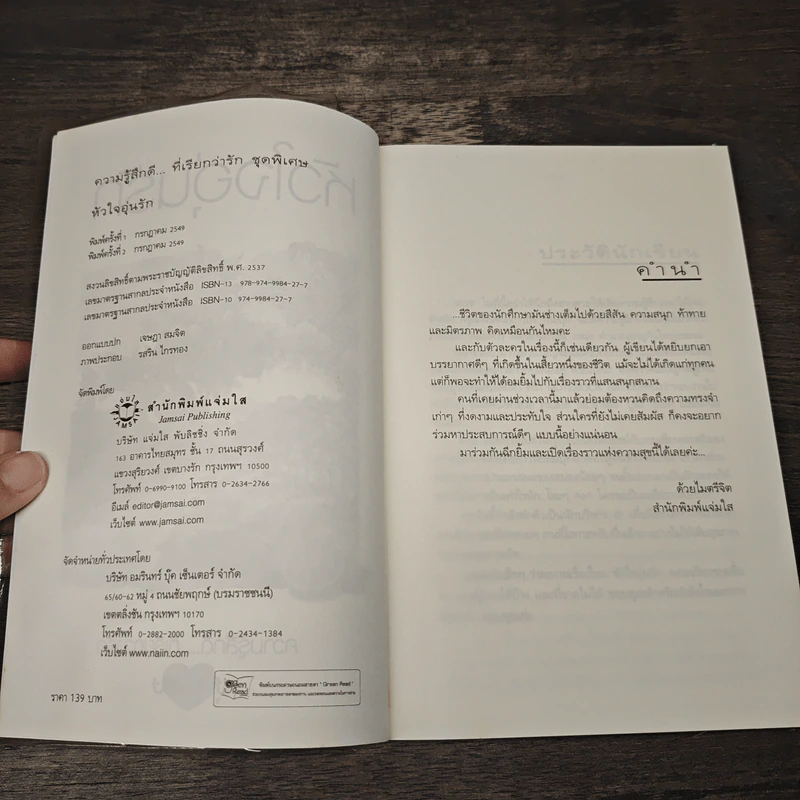 ความรู้สึกดี... ที่เรียกว่ารัก ชุดพิเศษ
หัวใจอุ่นรัก
พิมพ์ครั้งที่ 1 กรกฎาคม 2549
พิมพ์ครั้งที่ 2 กรกฎาคม 2549
สงวนลิขสิทธิ์ตามพระราชบัญญัติลิขสิทธิ์ พ.ศ. 2537
เลขมาตรฐานสากลประจำหนังสือ ISBN-13 978-974-9984-27-7
เลขมาตรฐานสากลประจำหนังสือ ISBN-10 974-9984-27-7
ออกแบบปก เจษฎา สมจิต
ภาพประกอบ รสริน ไกรทอง
จัดพิมพ์โดย
สำนักพิมพ์แจ่มใส
Jamsai Publishing
บริษัท แจ่มใส พับลิชชิ่ง จำกัด
163 อาคารไทยสมุทร ชั้น 17 ถนนสุรวงศ์
แขวงสุริยวงศ์ เขตบางรัก กรุงเทพฯ 10500
โทรศัพท์ 0-6990-9100 โทรสาร 0-2634-2766
อีเมล์ editor@jamsai.com
เว็บไซต์ www.jamsai.com
จัดจำหน่ายทั่วประเทศโดย
บริษัท อมรินทร์ บุ๊ค เซ็นเตอร์ จำกัด
65/60-62 หมู่ 4 ถนนชัยพฤกษ์ (บรมราชชนนี)
เขตตลิ่งชัน กรุงเทพฯ 10170
โทรศัพท์ 0-2882-2000 โทรสาร 0-2434-1384
เว็บไซต์ www.naiin.com
ราคา 139 บาท
Green Read
พิมพ์บนกระดาษถนอมสายตา "Green Read"
คำนำ
...ชีวิตของนักศึกษามันช่างเต็มไปด้วยสีสัน ความสนุก ท้าทาย
และมิตรภาพ คิดเหมือนกันไหมคะ
และกับตัวละครในเรื่องนี้ก็เช่นเดียวกัน ผู้เขียนได้หยิบยกเอา
บรรยากาศดีๆ ที่เกิดขึ้นในเสี้ยวหนึ่งของชีวิต แม้จะไม่ได้เกิดแก่ทุกคน
แต่ก็พอจะทำให้ได้อมยิ้มไปกับเรื่องราวที่แสนสนุกสนาน
คนที่เคยผ่านช่วงเวลานี้มาแล้วย่อมต้องหวนคิดถึงความทรงจำ
เก่าๆ ที่งดงามและประทับใจ ส่วนใครที่ยังไม่เคยสัมผัส ก็คงจะอยาก
ร่วมหาประสบการณ์ดีๆ แบบนี้อย่างแน่นอน
มาร่วมกันฉีกยิ้มและเปิดเรื่องราวแห่งความสุขนี้ได้เลยค่ะ...
ด้วยไมตรีจิต
สำนักพิมพ์แจ่มใส